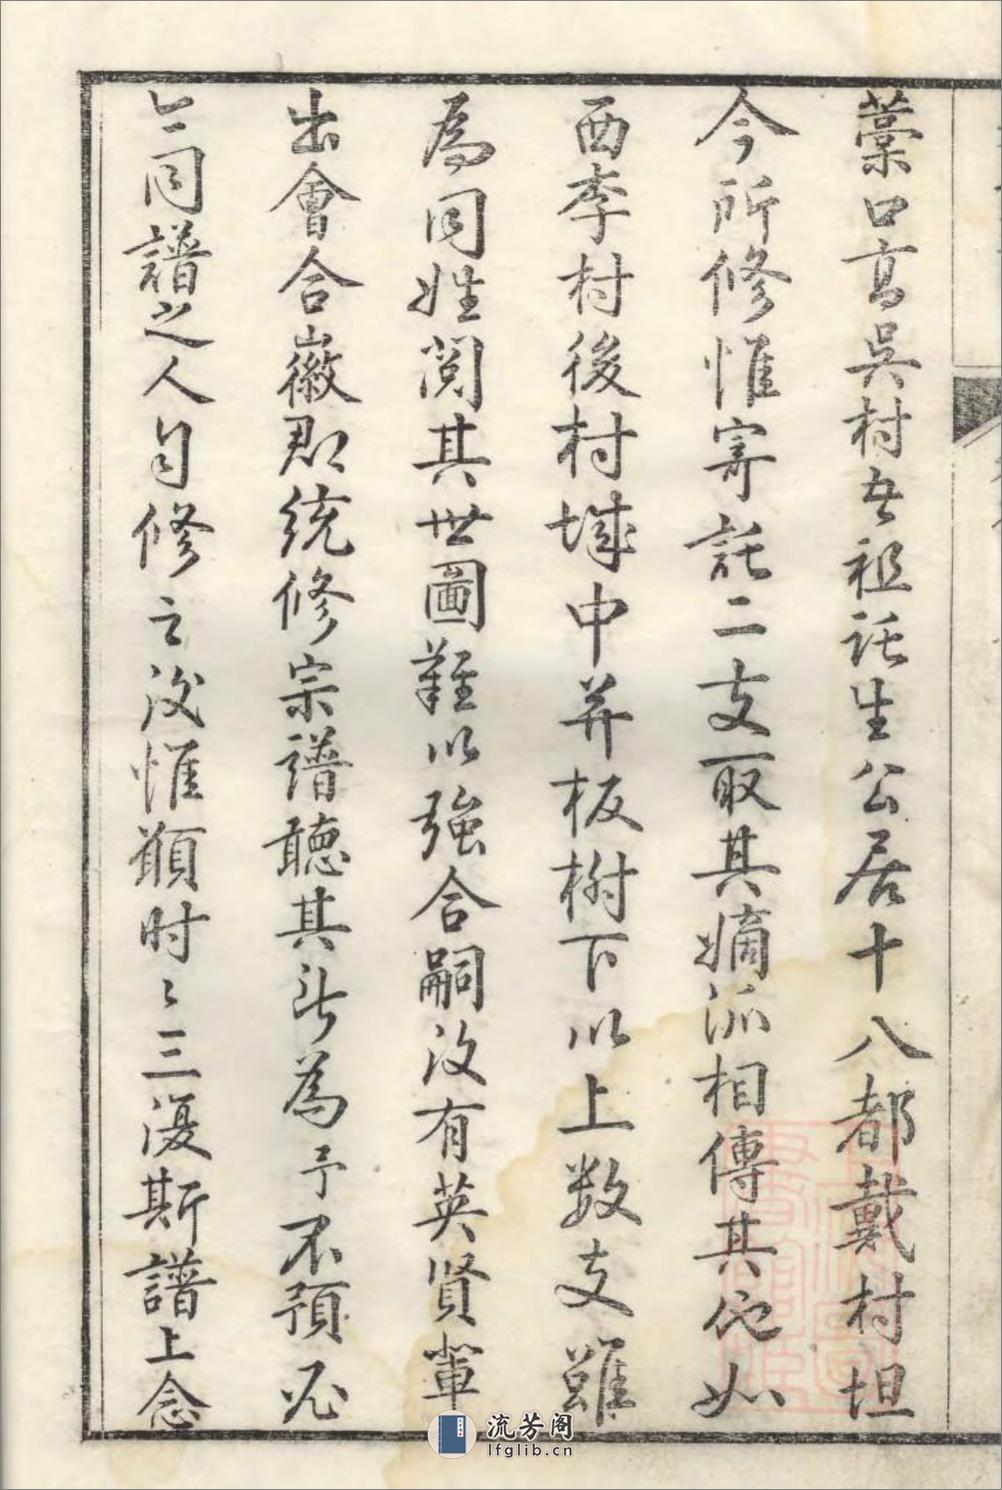 藁口高吳村吾祖託生公居十八都戴村坦
今所修惟寄託二支取其嫡派相傳其他如
西李村後村城中并板樹下以上数支雖
為同姓閲其世圖難以強合嗣後有英賢輩
出會合徽郡統修宗譜聽其所為予不預必
今同譜之人自修之後惟願时々三復斯譜上念
流芳阁
lfglib.cn